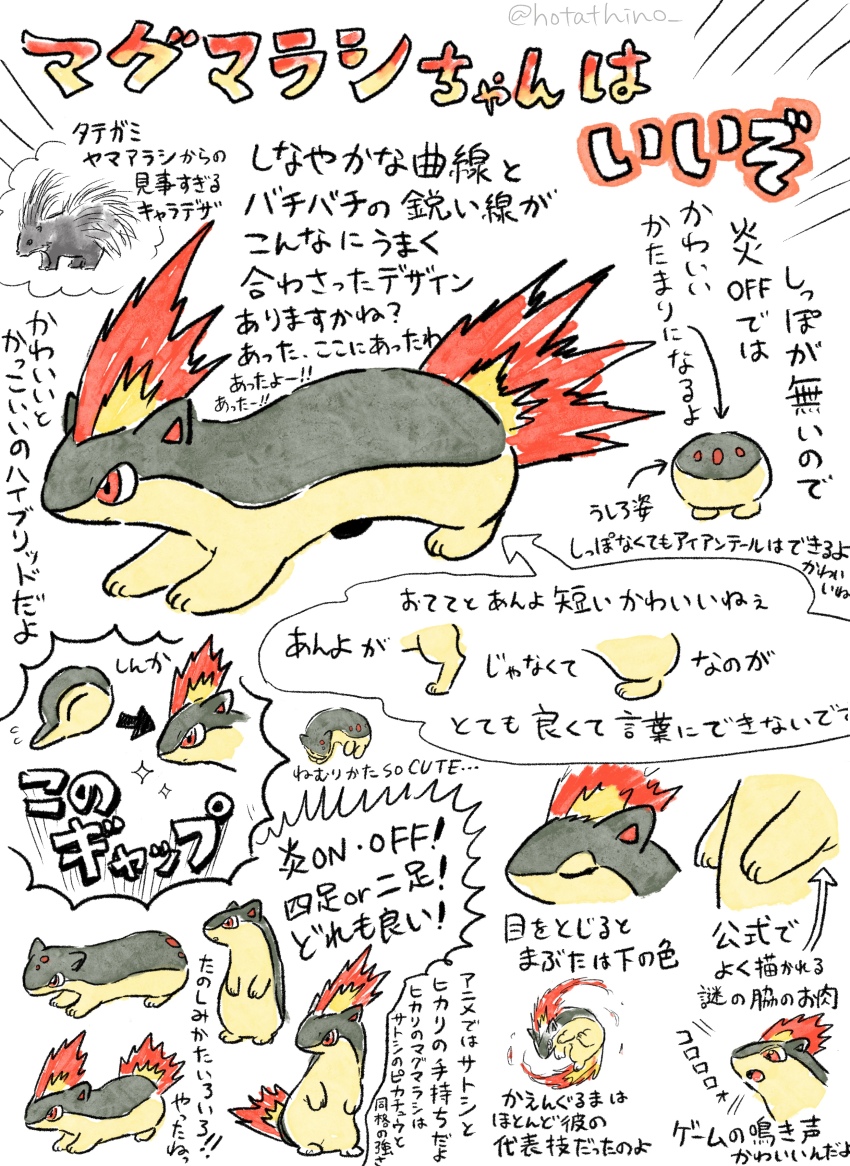 @hotathino_
マグマラシちゃんは
いいぞ
タテガミ
ヤマアラシからの
見事すぎる
キャラデザ
しなやかな曲線と
バチバチの鋭い線が
こんなにうまく
合わさったデザイン
ありますかね?
あった、ここにあったわ
あったよー!!
あったー!!
しっぽが無いので
炎OFFでは
かわいい
かたまりになるよ
うしろ姿
しっぽなくてもアイアンテールはできるよ
かわいいね
かわいいと
かっこいいのハイブリッドだよ
おててとあんよ短いかわいいねぇ
あんよが
じゃなくて
なのが
とても良くて言葉にできないで?
しんか
このギャップ
ねむりかたSO CUTE…
炎ON・OFF!
四足or二足!
どれも良い!
たのしみかたいろいろ!!
やったねっ
アニメではサトシと
ヒカリの手持ちだよ
ヒカリのマグマラシは
サトシのピカチュウと
同格の強さ
目をとじると
まぶたは下の色
公式で
よく描かれる
謎の脇のお肉
かえんぐるまは
ほとんど彼の
代表技だったのよ
コロロロ
ゲームの鳴き声
かわいいんだよ